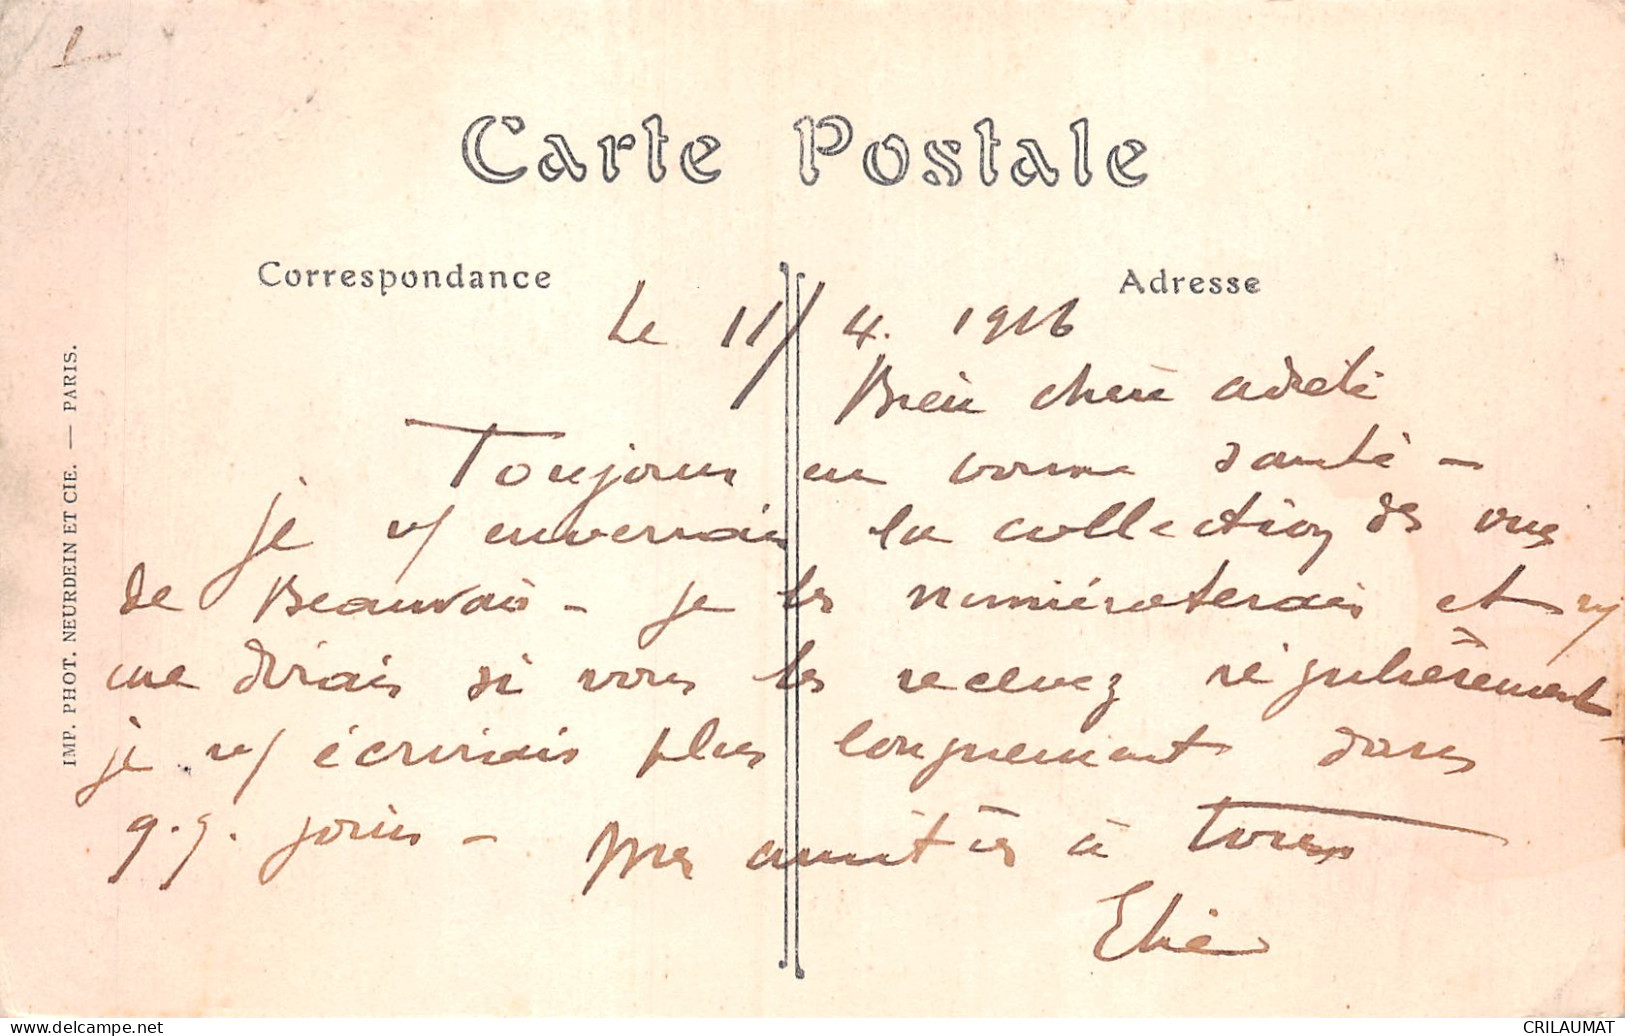 1
Carte Postale
Correspondance
Adresse
Le 11/4. 1916
Bien cher
Toujours en bonne santé –
je v/ enverrais la collection des vues
de Beauvais – je les numéroterais et v/
me dirais si vous les recevez régulièrement –
je v/ écrirais plus longuement dans
q.q. jours – Mes amitiés à tous
Elie
IMP. PHOT. NEURDEIN ET CIE. — PARIS.
www.delcampe.net
CRILAUMAT